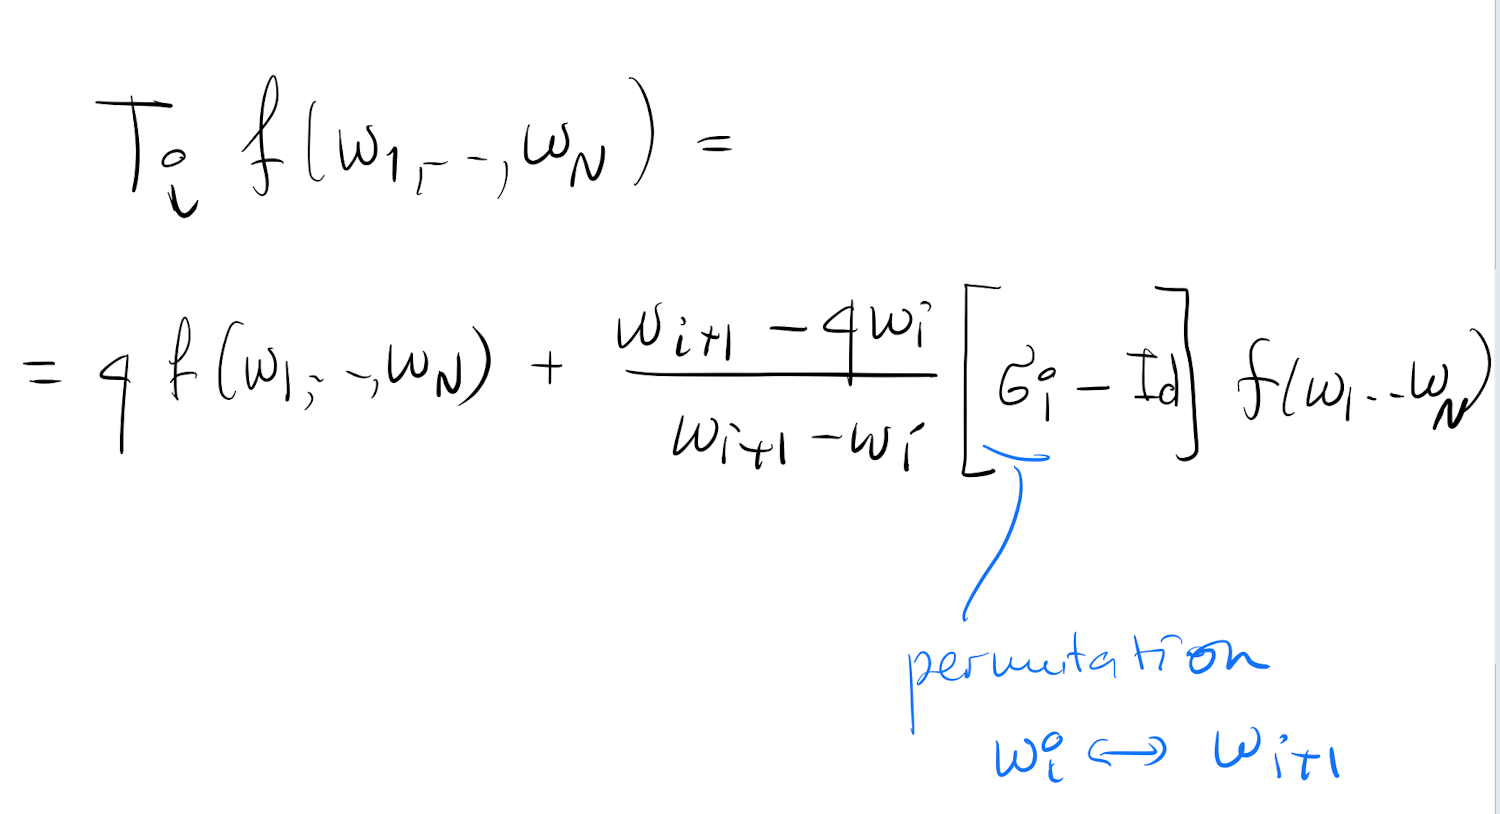 T_i f(w_1, --, w_N) =
= q f(w_1, --, w_N) + \frac{w_{i+1} - q w_i}{w_{i+1} - w_i} [σ_i - Id] f(w_1 .. w_N)
permutation
w_i ↔ w_{i+1}